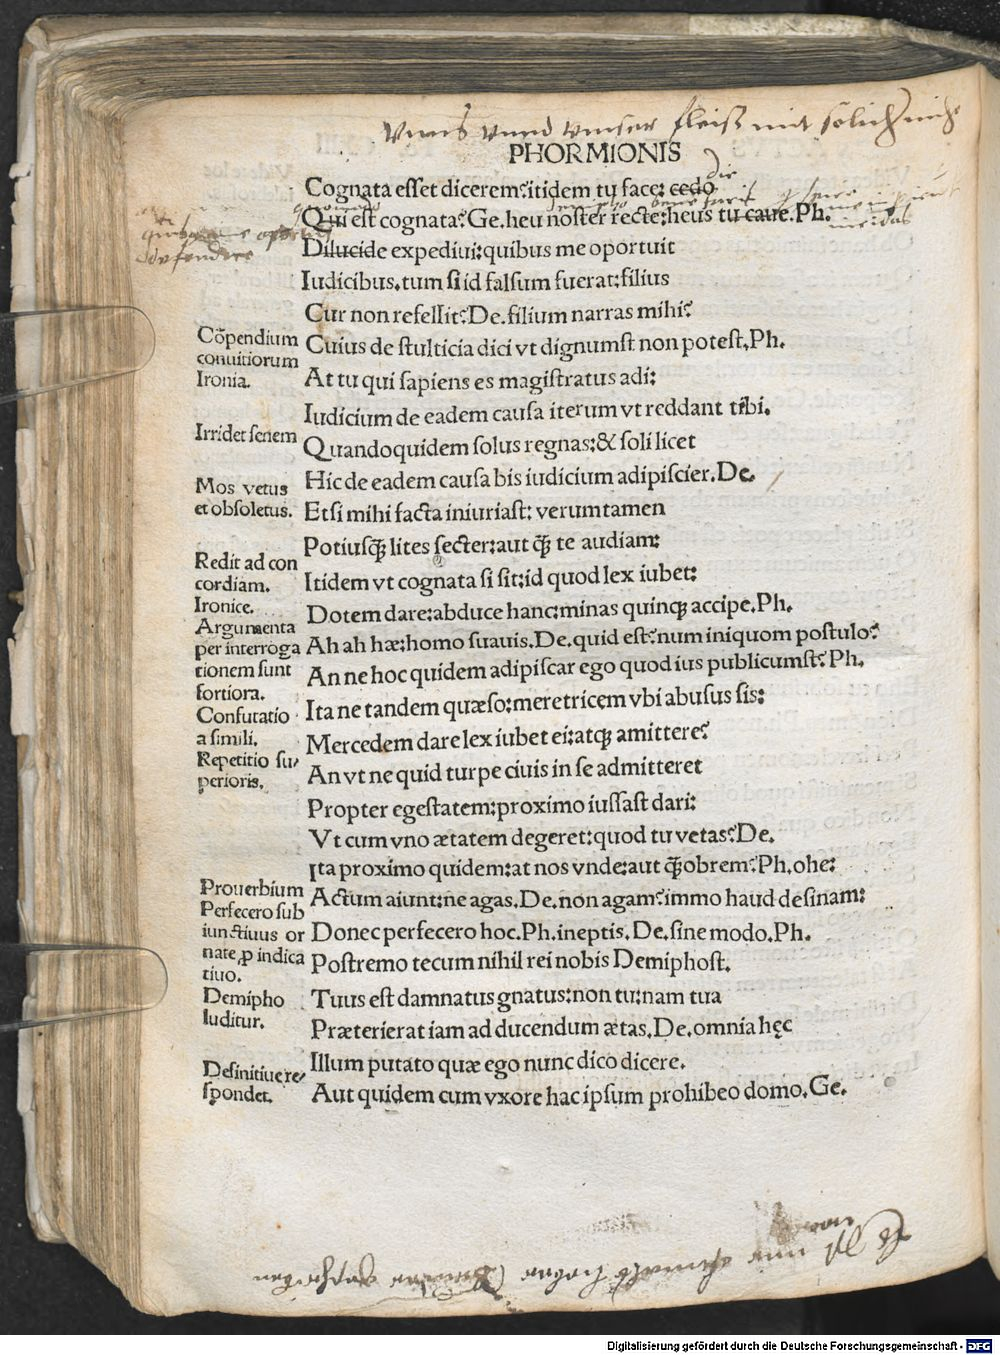 PHORMIONIS
Cognata esset dicerem?itidem tu face: cedo
Qui est cognata?Ge.heu noster recte:heus tu caue.Ph.
Dilucide expediui:quibus me oportuit
Iudicibus.tum si id falsum fuerat:filius
Cur non refellit?De.filium narras mihi?
Cuius de stulticia dici vt dignumst non potest.Ph.
At tu qui sapiens es magistratus adi:
Iudicium de eadem causa iterum vt reddant tibi.
Quandoquidem solus regnas:& soli licet
Hic de eadem causa bis iudicium adipiscier.De.
Etsi mihi facta iniuriast: verumtamen
Potiusq̃ lites secter:aut q̃ te audiam:
Itidem vt cognata si sit:id quod lex iubet:
Dotem dare:abduce hanc:minas quinqꝫ accipe.Ph.
Ah ah hæ:homo suauis.De.quid est?num iniquom postulo?
An ne hoc quidem adipiscar ego quod ius publicumst?Ph.
Ita ne tandem quæso:meretricem vbi abusus sis:
Mercedem dare lex iubet ei:atqꝫ amittere?
An vt ne quid turpe ciuis in se admitteret
Propter egestatem:proximo iussast dari:
Vt cum vno ætatem degeret:quod tu vetas?De.
Ita proximo quidem:at nos vnde:aut q̃obrem?Ph.ohe:
Actum aiunt:ne agas.De.non agam?immo haud desinam:
Donec perfecero hoc.Ph.ineptis.De.sine modo.Ph.
Postremo tecum nihil rei nobis Demiphost.
Tuus est damnatus gnatus:non tu:nam tua
Præterierat iam ad ducendum ætas.De.omnia hęc
Illum putato quæ ego nunc dico dicere.
Aut quidem cum vxore hac ipsum prohibeo domo.Ge.
Cõpendium
conuitiorum
Ironia.
Irridet senem
Mos vetus
et obsoletus.
Redit ad con
cordiam.
Ironice.
Argumenta
per interroga
tionem sunt
fortiora.
Confutatio
a simili.
Repetitio su/
perioris.
Prouerbium
Perfecero sub
iunctiuus or
nate ꝓ indica
tiuo.
Demipho
luditur.
Desinitiue re/
spondet.
Digitalisierung gefördert durch die Deutsche Forschungsgemeinschaft - DFG